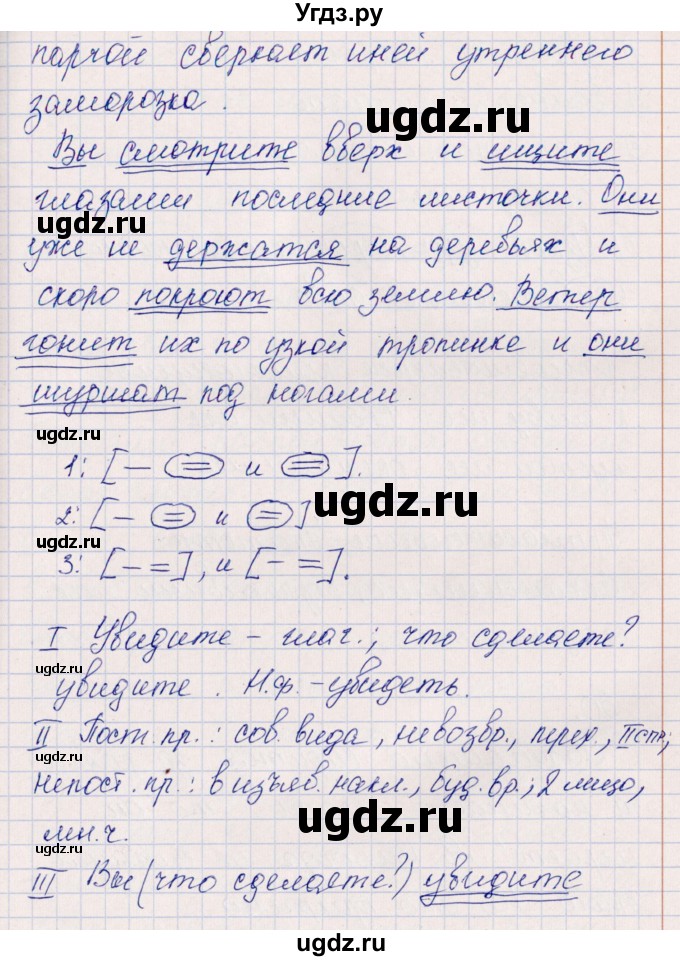 Угдз.ру
парчой сверкает иней утреннего
заморозка.
Вы смотрите вверх и ищите
глазами последние листочки. Они
уже не держатся на деревьях и
скоро покроют всю землю. Ветер
гонит их по узкой тропинке и они
шуршат под ногами.
1: [– = и =].
2: [– = и =]
3: [– =], и [– =].
I Увидите – глаг.; что сделаете?
увидите. Н.ф. – увидеть.
II Пост. пр.: сов. вида, невозвр., перех., II спр;
Непост. пр.: в изъяв. накл., буд. вр.; 2 лицо,
мн.ч.
III Вы (что сделаете?) увидите
ugdz.ru
ugdz.ru
ugdz.ru
ugdz.ru
ugdz.ru
ugdz.ru
ugdz.ru
ugdz.ru
ugdz.ru
ugdz.ru
ugdz.ru